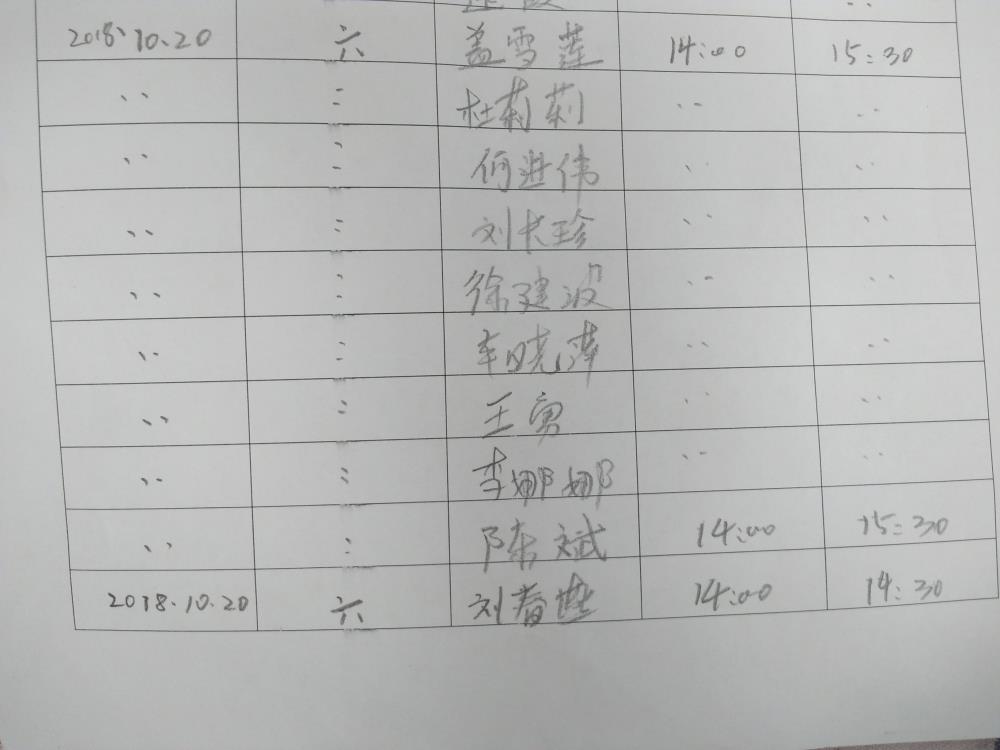 2018.10.20 六 盖雪莲 14:00 15:30
〃 〃 杜莉莉 〃 〃
〃 〃 何进伟 〃 〃
〃 〃 刘长珍 〃 〃
〃 〃 徐建波 〃 〃
〃 〃 车晓萍 〃 〃
〃 〃 王勇 〃 〃
〃 〃 李娜娜 〃 〃
〃 〃 陈斌 14:00 15:30
2018.10.20 六 刘春 14:00 14:30